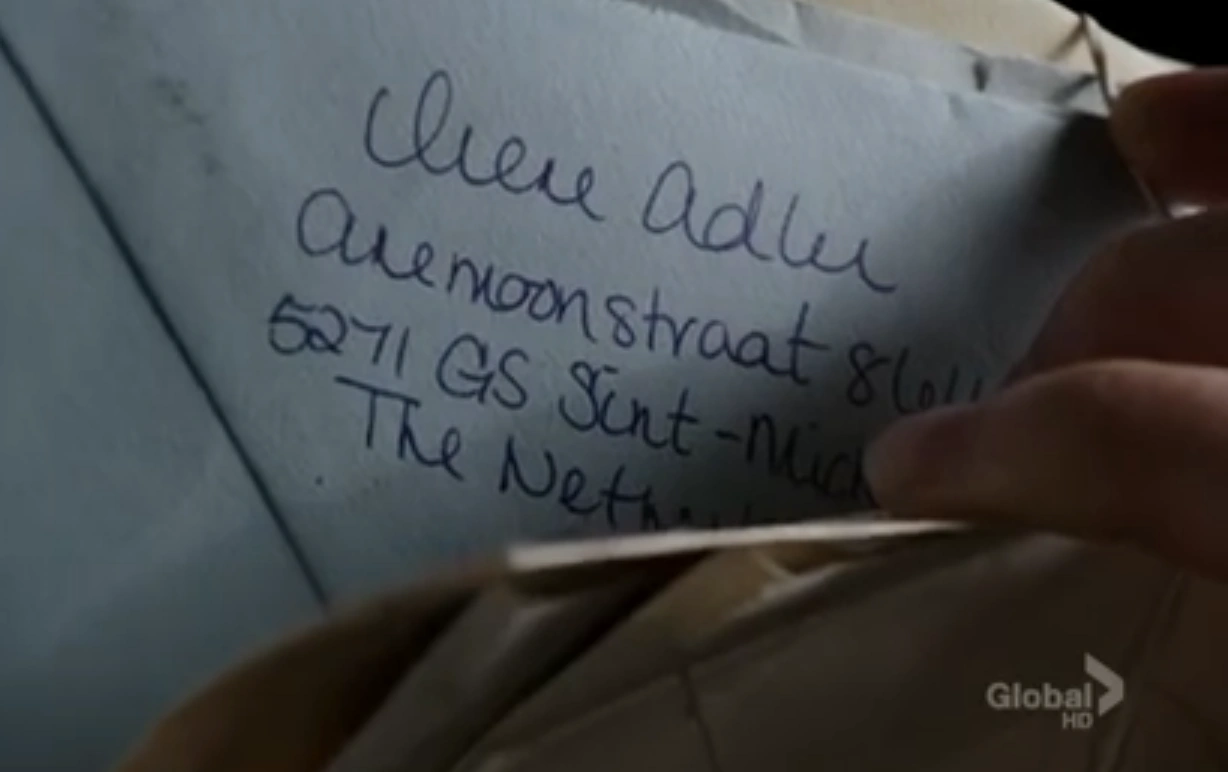 Irene Adler
Anemoonstraat
5271 GS Sint-Mich
The Neth
Global
HD